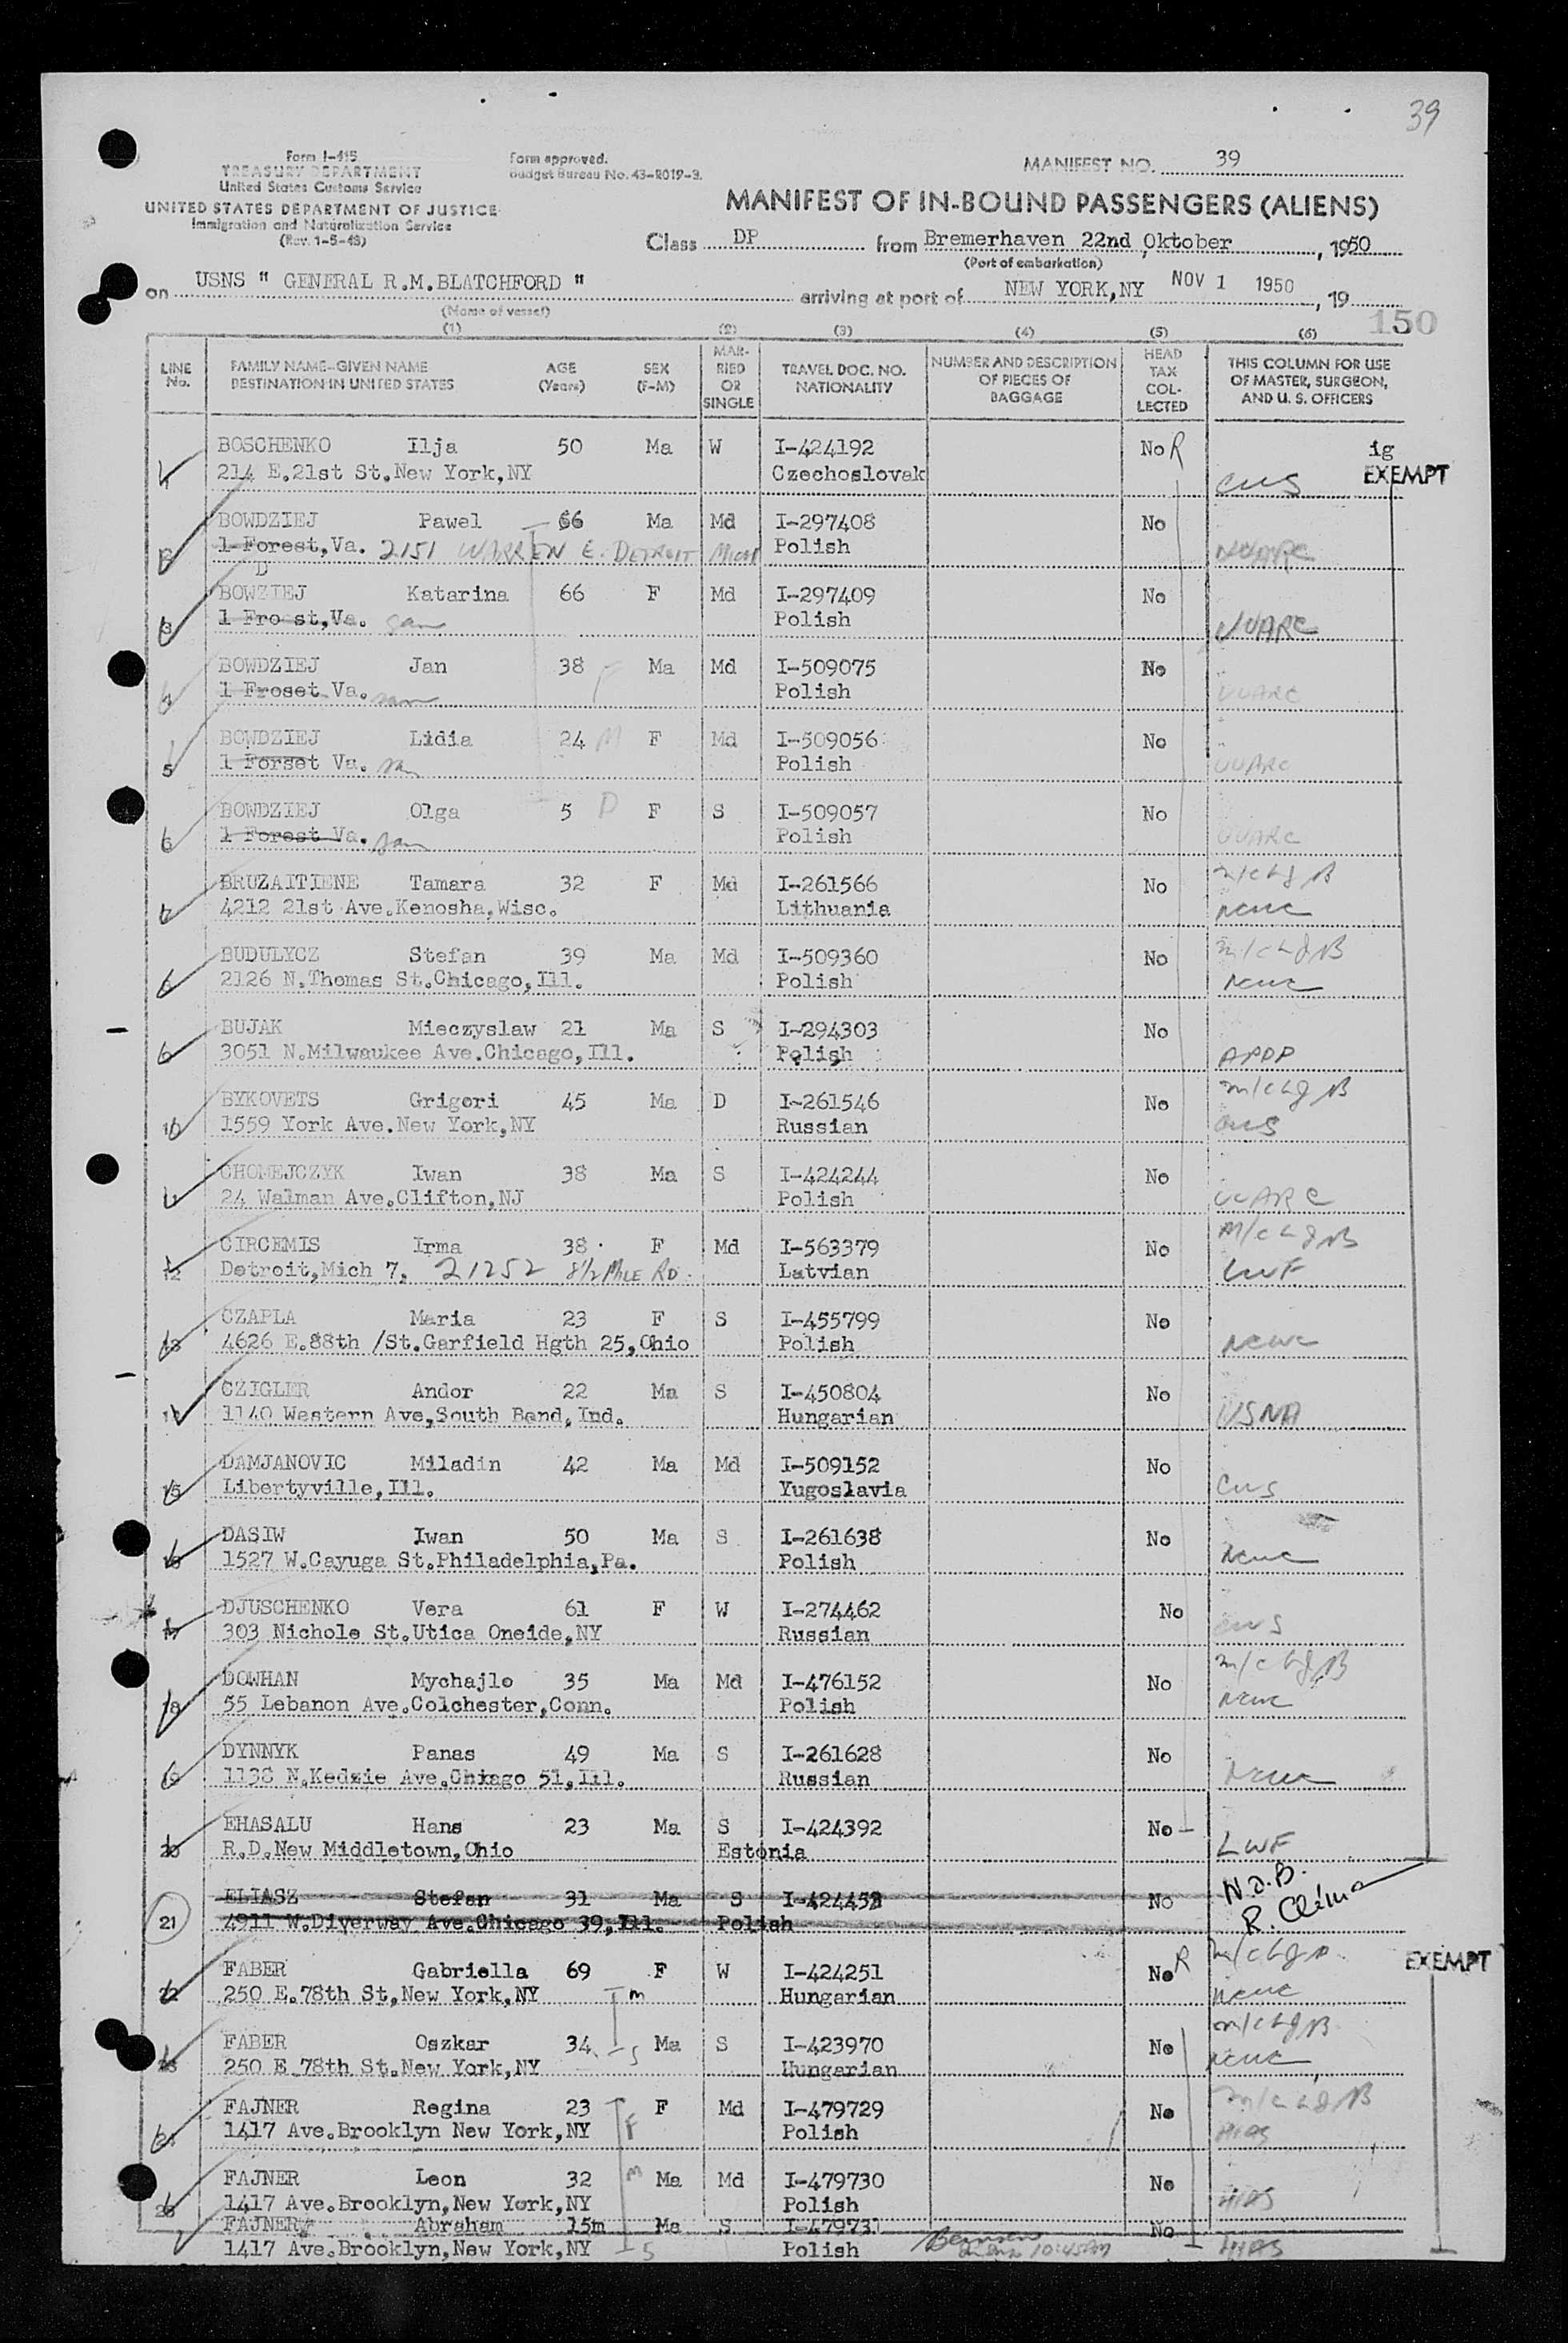 39
Form I-415
TREASURY DEPARTMENT
United States Customs Service
UNITED STATES DEPARTMENT OF JUSTICE
Immigration and Naturalization Service
(Rev. 1-5-48)
Form approved.
Budget Bureau No. 43-R019-3.
MANIFEST NO. 39
MANIFEST OF IN-BOUND PASSENGERS (ALIENS)
Class DP from Bremerhaven 22nd Oktober, 1950
(Port of embarkation)
on USNS " GENERAL R.M.BLATCHFORD " arriving at port of NEW YORK,NY NOV 1 1950, 19
(Name of vessel)
150
(1) (2) (3) (4) (5) (6)
LINE No. FAMILY NAME-GIVEN NAME DESTINATION IN UNITED STATES AGE (Years) SEX (F-M) MARRIED OR SINGLE TRAVEL DOC. NO. NATIONALITY NUMBER AND DESCRIPTION OF PIECES OF BAGGAGE HEAD TAX COLLECTED THIS COLUMN FOR USE OF MASTER, SURGEON, AND U. S. OFFICERS
BOSCHENKO Ilja 50 Ma W I-424192 No R ig
214 E.21st St.New York,NY Czechoslovak CWS EXEMPT
BOWDZIEJ Pawel 66 Ma Md I-297408 No
1 Forest,Va. 2151 WARREN E. DETROIT MICH Polish UUARC
D
3 BOWZIEJ Katarina 66 F Md I-297409 No
1 Fro st,Va. same Polish UUARC
BOWDZIEJ Jan 38 F Ma Md I-509075 No
1 Froset Va. same Polish UUARC
5 BOWDZIEJ Lidia 24 M F Md I-509056 No
1 Forset Va. same Polish UUARC
6 BOWDZIEJ Olga 5 D F S I-509057 No
1 Forest Va. same Polish UUARC
BRUZAITIENE Tamara 32 F Md I-261566 No
4212 21st Ave.Kenosha,Wisc. Lithuania NCWC
BUDULYCZ Stefan 39 Ma Md I-509360 No
2126 N.Thomas St.Chicago,Ill. Polish NCWC
BUJAK Mieczyslaw 21 Ma S I-294303 No
3051 N.Milwaukee Ave.Chicago,Ill. Polish APDP
10 BYKOVETS Grigori 45 Ma D I-261546 No
1559 York Ave.New York,NY Russian CWS
CHOMEJCZYK Iwan 38 Ma S I-424244 No
24 Walman Ave.Clifton,NJ Polish UUARC
12 CIRCEMIS Irma 38 F Md I-563379 No
Detroit,Mich 7. 21252 8½ MILE RD. Latvian LWF
13 CZAPLA Maria 23 F S I-455799 No
4626 E.88th /St.Garfield Hgth 25,Ohio Polish NCWC
CZIGLER Andor 22 Ma S I-450804 No
1140 Western Ave,South Band,Ind. Hungarian USNA
15 DAMJANOVIC Miladin 42 Ma Md I-509152 No
Libertyville,Ill. Yugoslavia CWS
16 DASIW Iwan 50 Ma S I-261638 No
1527 W.Cayuga St.Philadelphia,Pa. Polish NCWC
17 DJUSCHENKO Vera 61 F W I-274462 No
303 Nichole St.Utica Oneide,NY Russian CWS
18 DOWHAN Mychajlo 35 Ma Md I-476152 No
55 Lebanon Ave.Colchester,Conn. Polish NCWC
19 DYNNYK Panas 49 Ma S I-261628 No
1138 N.Kedzie Ave.Chiago 51,Ill. Russian NCWC
20 EHASALU Hans 23 Ma S I-424392 No
R.D.New Middletown,Ohio Estonia LWF
21 ELIASZ Stefan 31 Ma S I-424453 No N.O.B.
4911 W.Diverway Ave.Chicago 39,Ill. Polish R.
22 FABER Gabriella 69 F W I-424251 No R EXEMPT
250 E.78th St,New York,NY m Hungarian NCWC
23 FABER Oszkar 34 S Ma S I-423970 No
250 E.78th St.New York,NY Hungarian NCWC
24 FAJNER Regina 23 F Md I-479729 No
1417 Ave.Brooklyn New York,NY F Polish HIAS
25 FAJNER Leon 32 m Ma Md I-479730 No
1417 Ave.Brooklyn,New York,NY Polish HIAS
FAJNER Abraham 15m Ma S I-479731 No
1417 Ave.Brooklyn,New York,NY S Polish 10:45PM HIAS